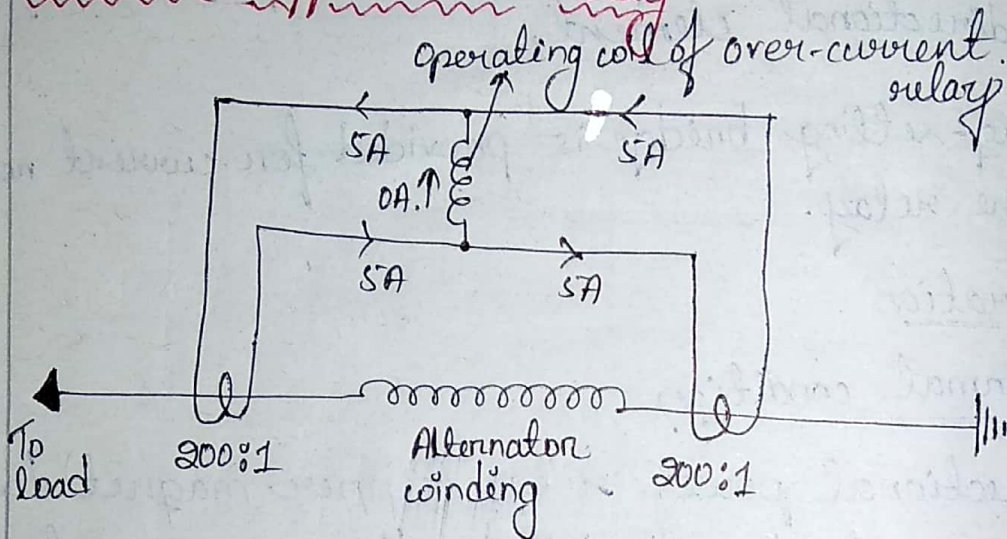 Operating coil of over-current
relay
5A
5A
0A.
5A
5A
To
load
200:1
Alternator
winding
200:1